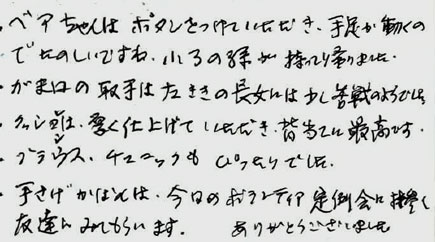 ・ベアちゃんは ボタンをつけていただき、手足が動くの
でたのしいですね。小3の孫が 持って帰りました。
・がま口の取手は左ききの長女には少し苦戦のようでした
・クッションは、厚く仕上げていただき、背当てに最高です。
・ブラウス、チュニックも ぴったりでした。
・手さげかばんは、今日のボランティア定例会に
友達にみてもらいます。 ありがとうございました